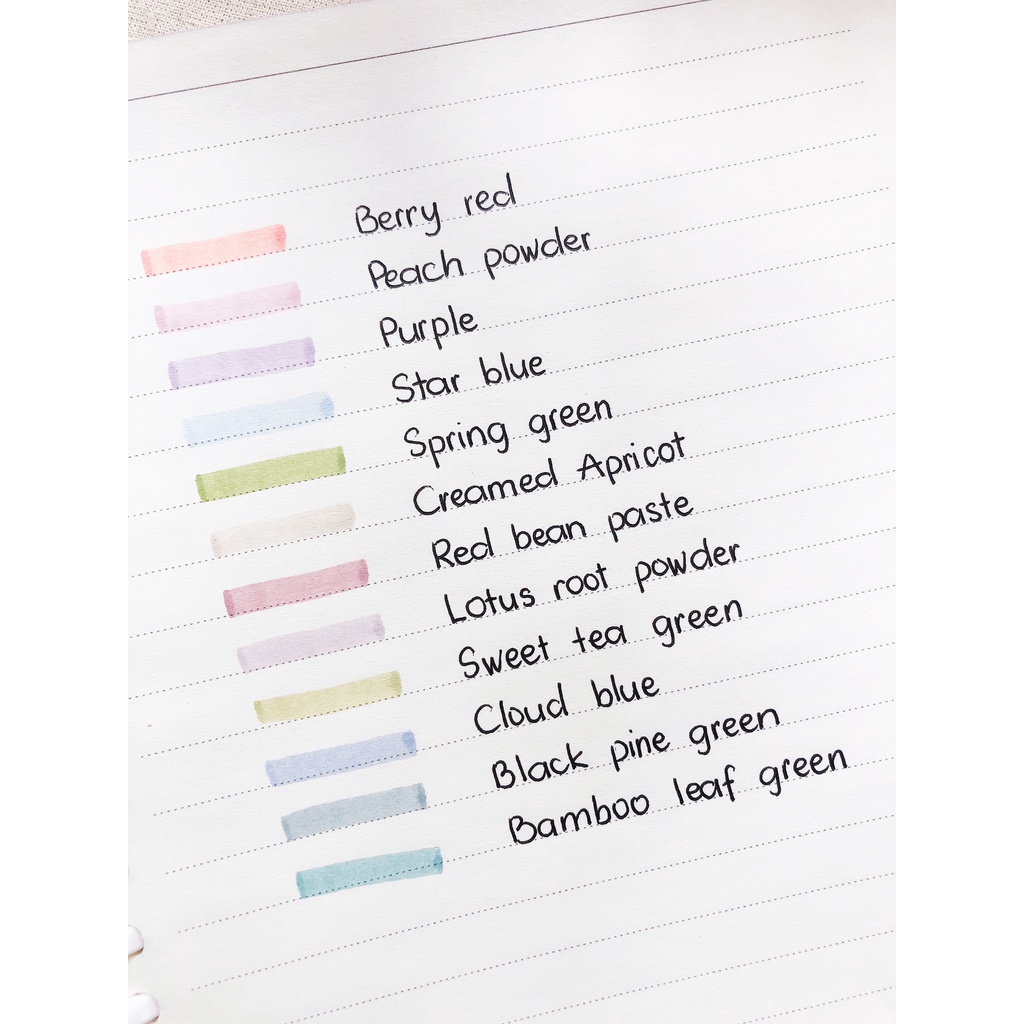 Berry red
Peach powder
Purple
Star blue
Spring green
Creamed Apricot
Red bean paste
Lotus root powder
Sweet tea green
Cloud blue
Black pine green
Bamboo leaf green